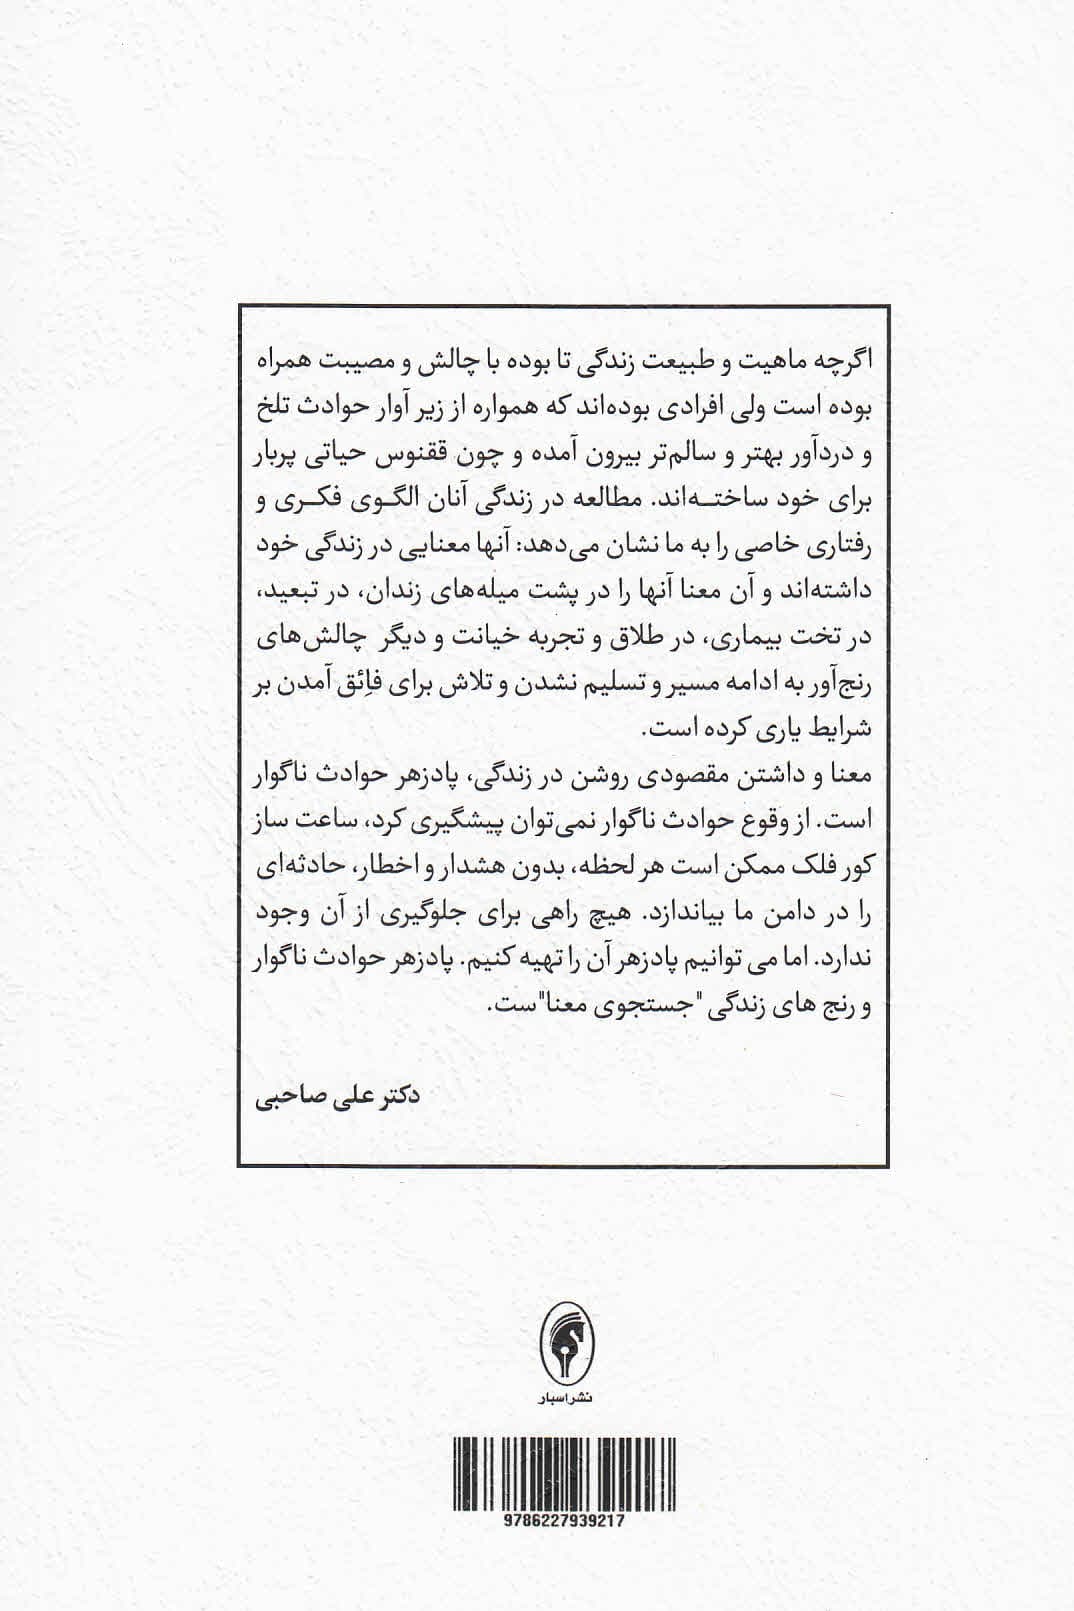 اگرچه ماهیت و طبیعت زندگی تا بوده با چالش و مصیبت همراه
بوده است ولی افرادی بوده‌اند که همواره از زیر آوار حوادث تلخ
و دردآور بهتر و سالم‌تر بیرون آمده و چون ققنوس حیاتی پربار
برای خود ساختــه‌اند. مطالعه در زندگی آنان الگــوی فکــری و
رفتاری خاصی را به ما نشان می‌دهد: آنها معنایی در زندگی خود
داشته‌اند و آن معنا آنها را در پشت میله‌های زندان، در تبعید،
در تخت بیماری، در طلاق و تجربه خیانت و دیگر چالش‌های
رنج‌آور به ادامه مسیر و تسلیم نشدن و تلاش برای فائِق آمدن بر
شرایط یاری کرده است.
معنا و داشتن مقصودی روشن در زندگی، پادزهر حوادث ناگوار
است. از وقوع حوادث ناگوار نمی‌توان پیشگیری کرد، ساعت ساز
کور فلک ممکن است هر لحظه، بدون هشدار و اخطار، حادثه‌ای
را در دامن ما بیاندازد. هیچ راهی برای جلوگیری از آن وجود
ندارد. اما می توانیم پادزهر آن را تهیه کنیم. پادزهر حوادث ناگوار
و رنج های زندگی "جستجوی معنا"ست.
دکتر علی صاحبی
نشر اسبار
9786227939217